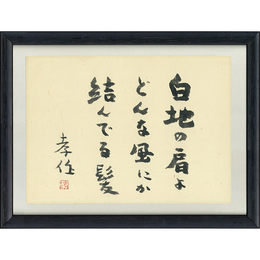 白地の肩よ
どんな風にか
結んでる髪
孝任